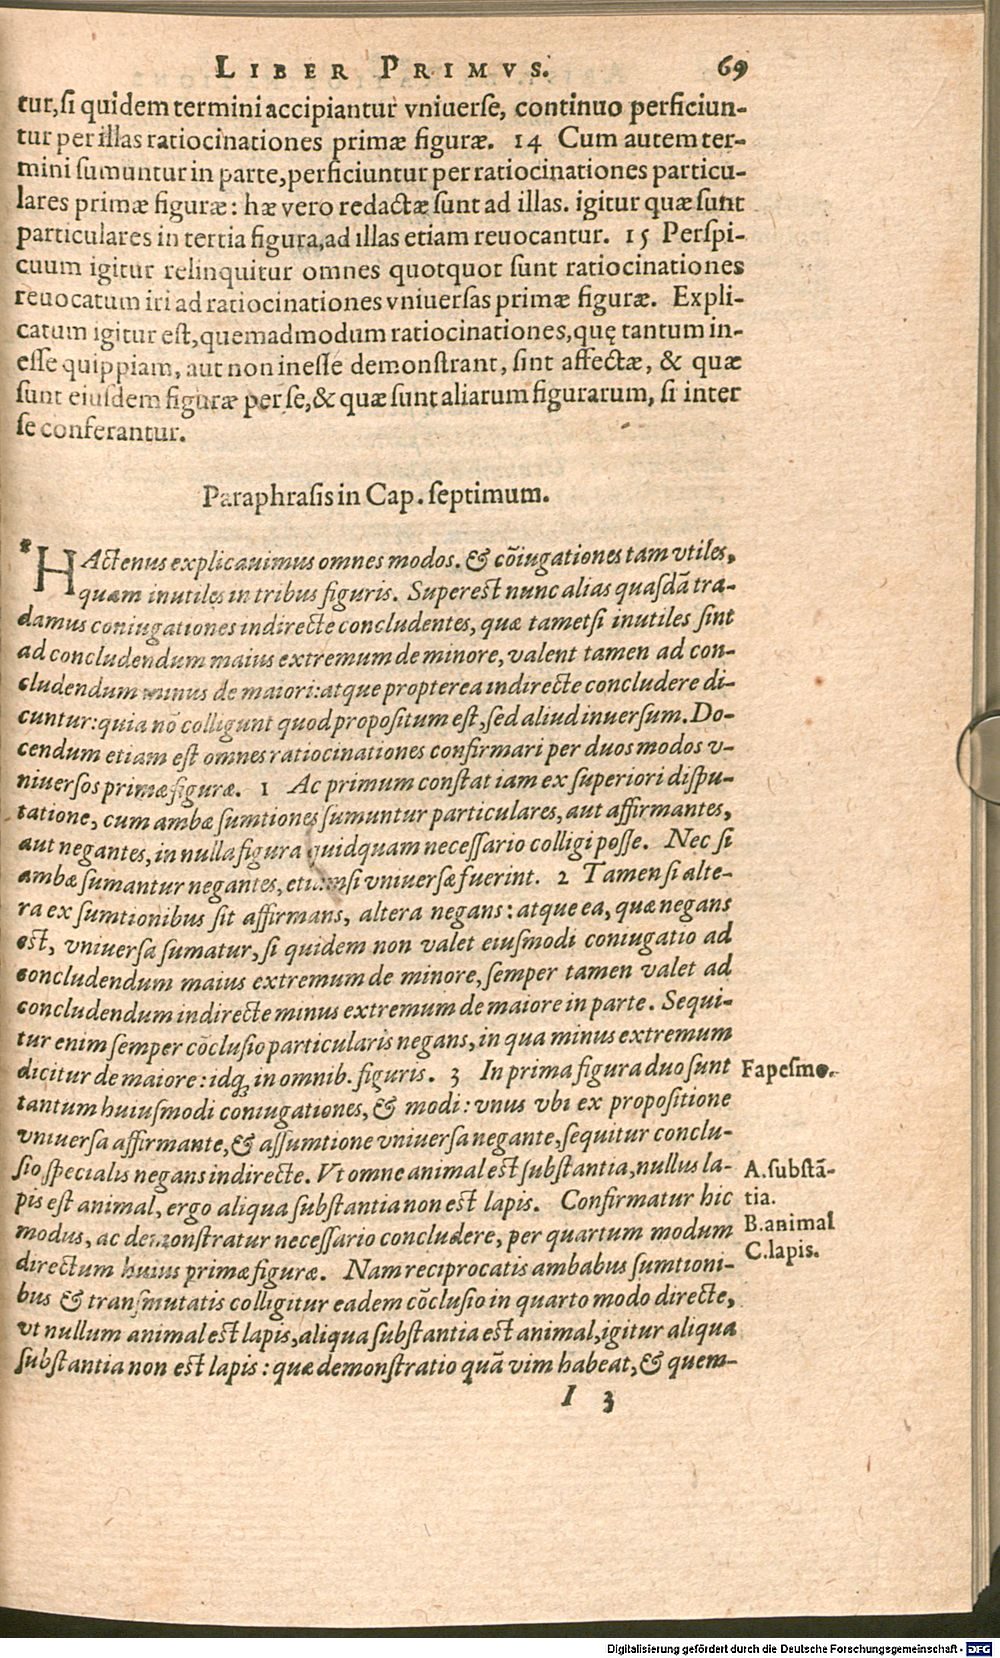 LIBER PRIMVS. 69
tur, si quidem termini accipiantur vniuerse, continuo perficiun-
tur per illas ratiocinationes primæ figuræ. 14 Cum autem ter-
mini sumuntur in parte, perficiuntur per ratiocinationes particu-
lares primæ figuræ: hæ vero redactæ sunt ad illas. igitur quæ sunt
particulares in tertia figura, ad illas etiam reuocantur. 15 Perspi-
cuum igitur relinquitur omnes quotquot sunt ratiocinationes
reuocatum iri ad ratiocinationes vniuersas primæ figuræ. Expli-
catum igitur est, quemadmodum ratiocinationes, quę tantum in-
esse quippiam, aut non inesse demonstrant, sint affectæ, & quæ
sunt eiusdem figuræ per se, & quæ sunt aliarum figurarum, si inter
se conferantur.
Paraphrasis in Cap. septimum.
* HActenus explicauimus omnes modos. & cõiugationes tam vtiles,
quam inutiles in tribus figuris. Superest nunc alias quasdã tra-
damus coniugationes indirecte concludentes, quæ tametsi inutiles sint
ad concludendum maius extremum de minore, valent tamen ad con-
cludendum minus de maiori: atque propterea indirecte concludere di-
cuntur: quia nõ colligunt quod propositum est, sed aliud inuersum. Do-
cendum etiam est omnes ratiocinationes confirmari per duos modos v-
niuersos primæ figuræ. 1 Ac primum constat iam ex superiori dispu-
tatione, cum ambæ sumtiones sumuntur particulares, aut affirmantes,
aut negantes, in nulla figura quidquam necessario colligi posse. Nec si
ambæ sumantur negantes, etiamsi vniuersæ fuerint. 2 Tamen si alte-
ra ex sumtionibus sit affirmans, altera negans: atque ea, quæ negans
est, vniuersa sumatur, si quidem non valet eiusmodi coniugatio ad
concludendum maius extremum de minore, semper tamen valet ad
concludendum indirecte minus extremum de maiore in parte. Sequi-
tur enim semper cõclusio particularis negans, in qua minus extremum
dicitur de maiore: idq́; in omnib. figuris. 3 In prima figura duo sunt
Fapesmo.
tantum huiusmodi coniugationes, & modi: vnus vbi ex propositione
vniuersa affirmante, & assumtione vniuersa negante, sequitur conclu-
sio specialis negans indirecte. Vt omne animal est substantia, nullus la-
A. substã-
pis est animal, ergo aliqua substantia non est lapis. Confirmatur hic
tia.
modus, ac demonstratur necessario concludere, per quartum modum
B. animal
directum huius primæ figuræ. Nam reciprocatis ambabus sumtioni-
C. lapis.
bus & transmutatis colligitur eadem cõclusio in quarto modo directe,
vt nullum animal est lapis, aliqua substantia est animal, igitur aliqua
substantia non est lapis: quæ demonstratio quã vim habeat, & quem-
I 3
Digitalisierung gefördert durch die Deutsche Forschungsgemeinschaft - DFG